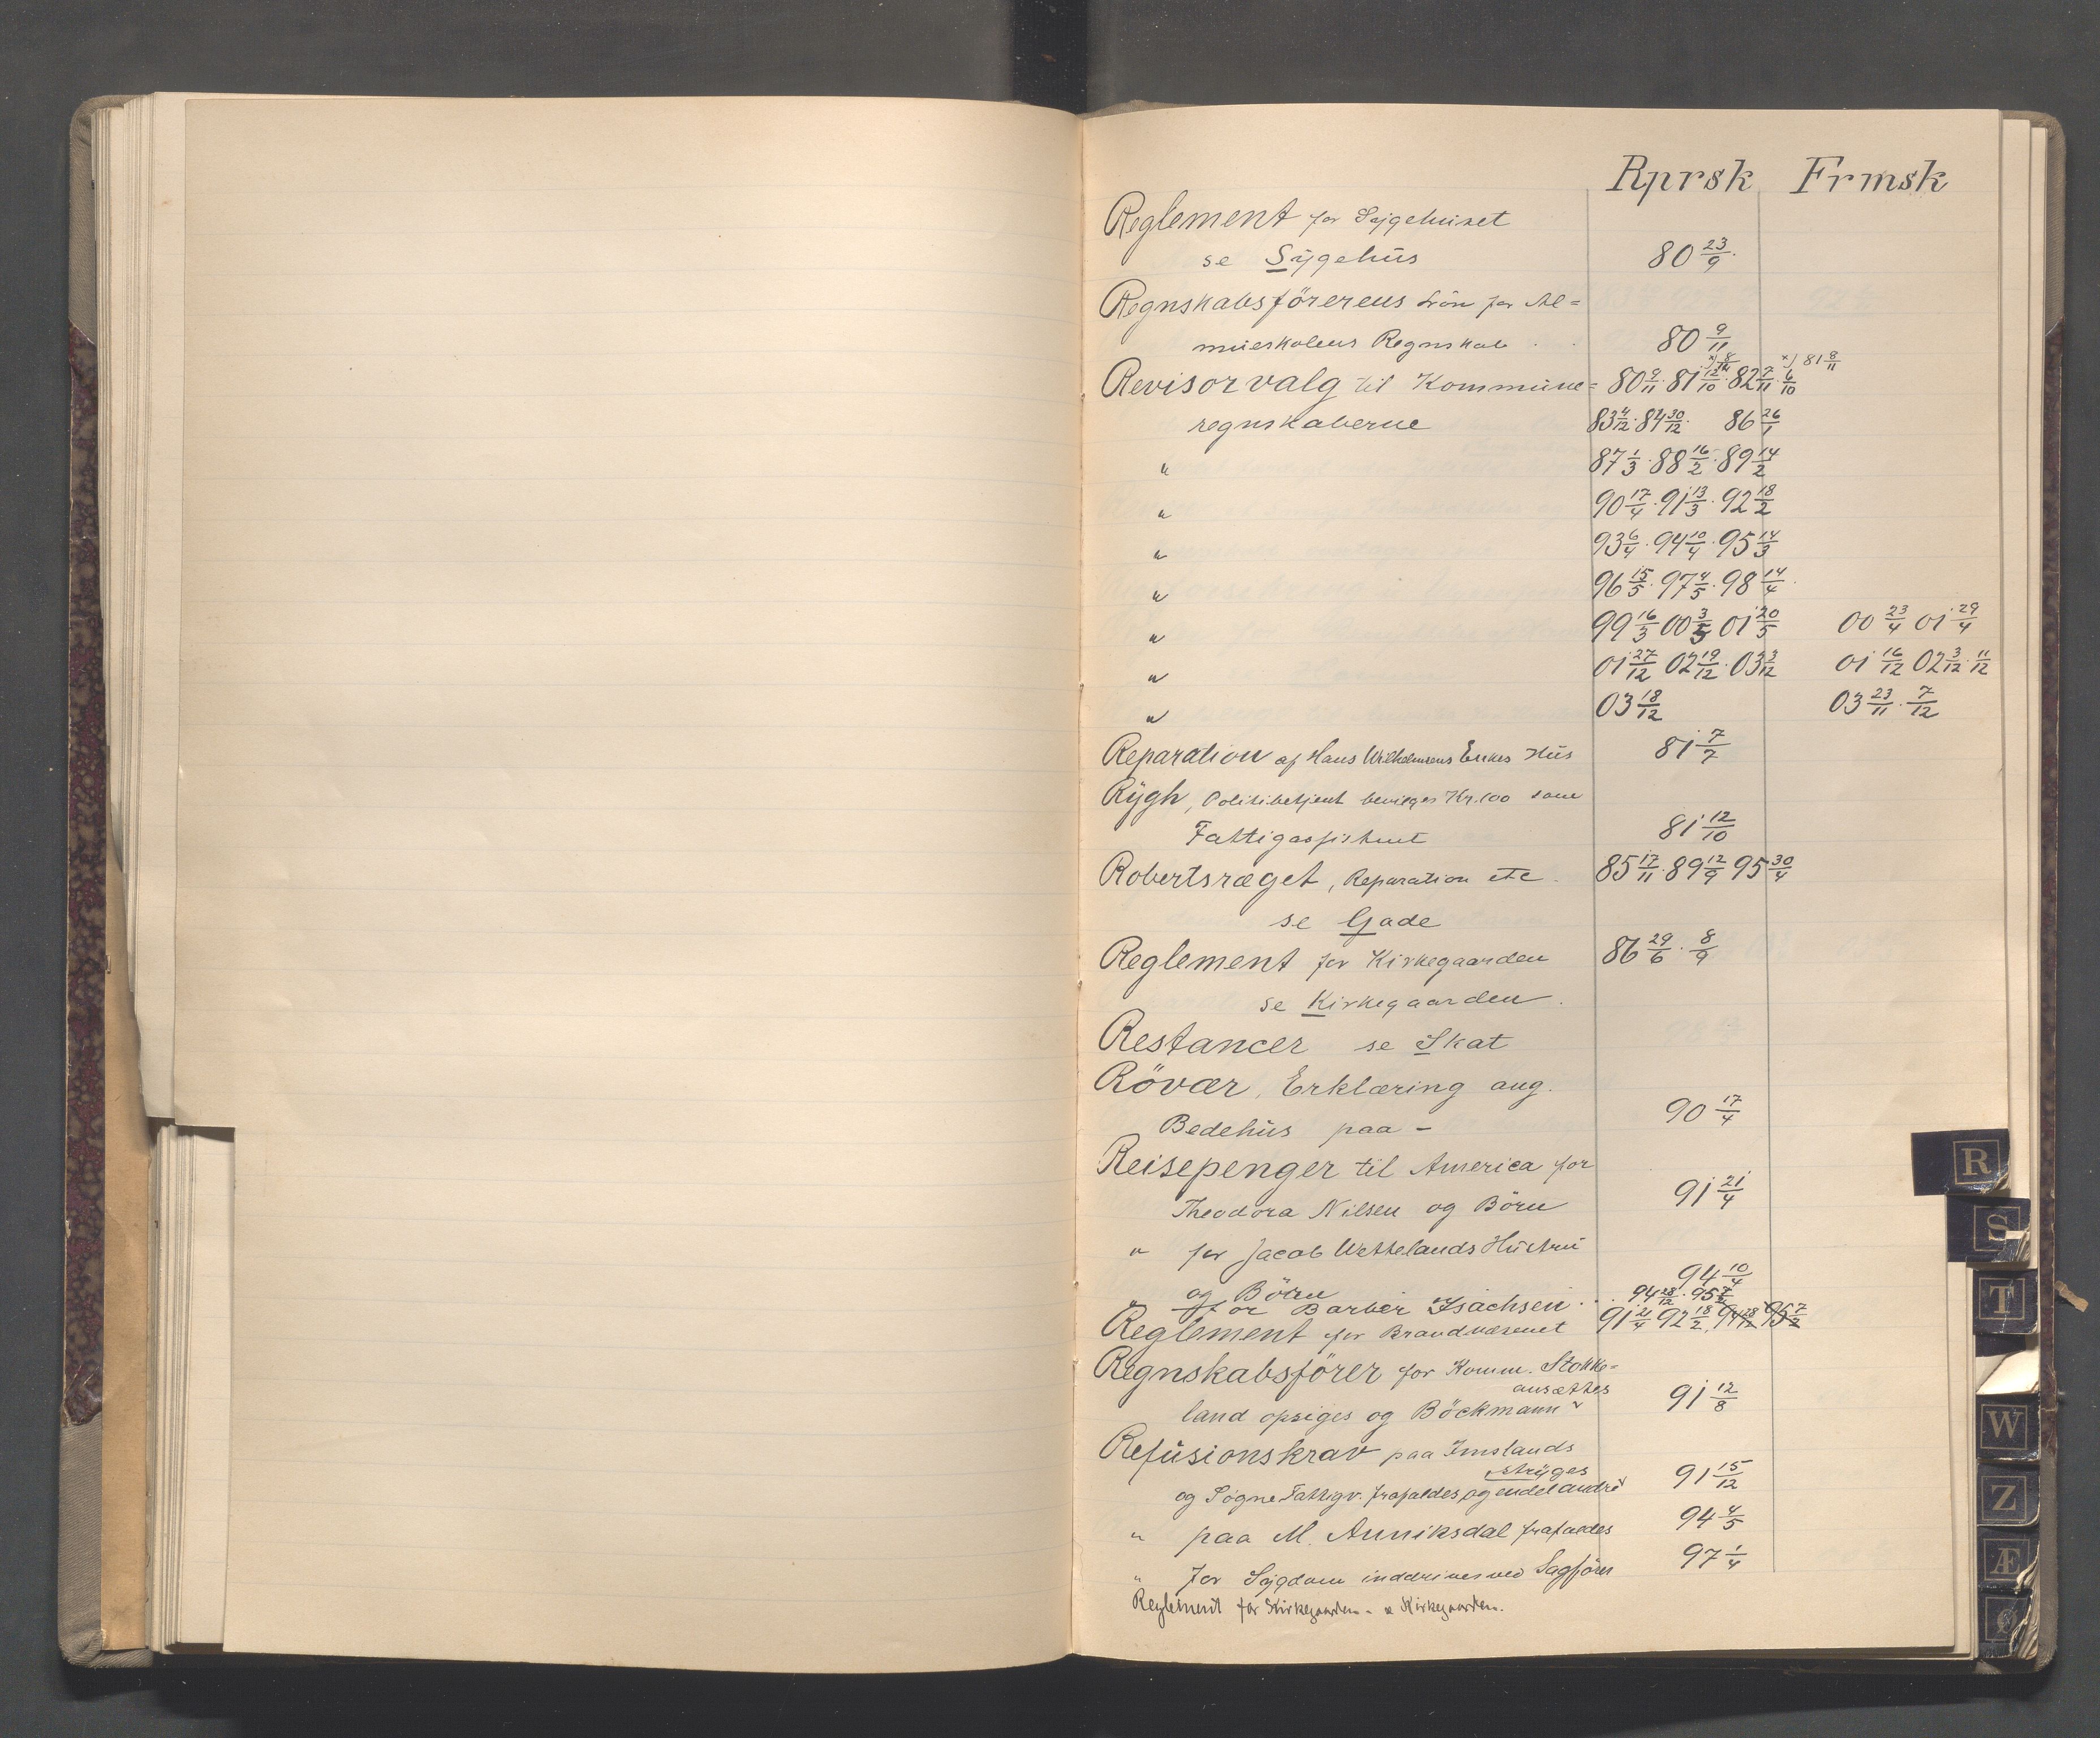 Rprsk Frmsk
Reglement for Sygehuset
se Sygehus 80 23/9.
Regnskabsförerens Lön for Al=
mueskolens Regnskab . . 80 9/11
x) 8/11 x) 81 8/11
Revisorvalg til Kommune= 80 9/11. 81 12/10. 82 7/11. 6/10
regnskaberne 83 4/12. 84 30/12. 86 26/1
" 87 1/3. 88 16/2. 89 14/2
" 90 17/4. 91 13/3. 92 18/2
" 93 6/4. 94 10/4. 95 14/3
" 96 15/5. 97 4/5. 98 14/4.
" 99 16/3 00 3/5 01 20/5 00 23/4 01 29/4
" 01 27/12 02 19/12. 03 3/12 01 16/12 02 3/12. 11/12
" 03 18/12 03 23/11. 7/12
Reparation af Hans Wilhelmsens Enkes Hus 81 7/7
Rygh, Politibetjent bevilges Kr. 100 som
Fattigassistent 81 12/10
Robertsræget, Reparation etc. 85 17/11. 89 12/9 95 30/4
se Gade
Reglement for Kirkegaarden 86 29/6. 8/9
se Kirkegaarden.
Restancer se Skat
Rövær, Erklæring ang.
Bedehus paa - 90 17/4
Reisepenger til America for
Theodora Nilsen og Börn 91 21/4
" for Jacob Wettelands Hustru
og Börn 94 10/4
" for Barber Isachsen . . . 94 28/12. 95 7/2
Reglement for Brandvæsenet 91 21/4 92 18/2. 94 28/12 95 7/2
Regnskabsförer for Komm. Stokke=
ansættes
land opsiges og Böckmann 91 12/8
Refusionskrav paa Imslands
stryges
og Sogne Fattigv. frafaldes, og endel andre 91 15/12
" paa M. Anniksdal frafaldes 94 4/5
" for Sygdom inddrives ved Sagförer 97 1/4
Reglement for Kirkegaarden - se Kirkegaarden.
R
S
T
W
Z
Æ
Ø